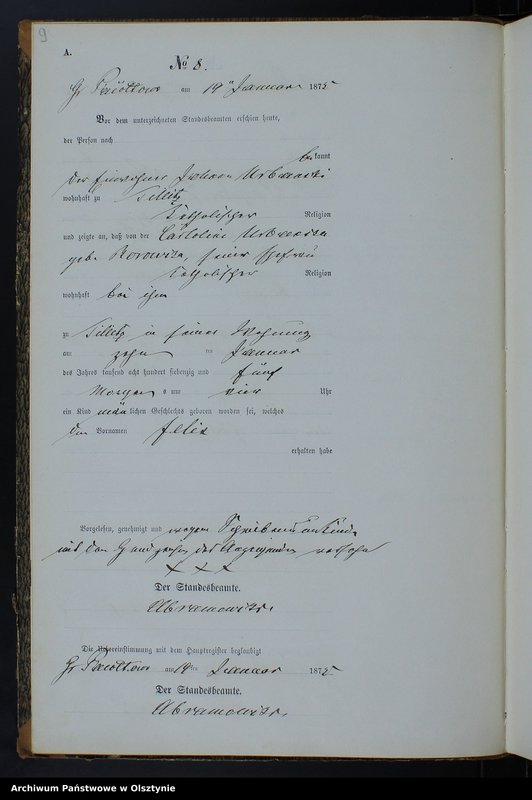 9
A.
No 8.
Gr Pacoltowo am 19ten Januar 1875
Vor dem unterzeichneten Standesbeamten erschien heute,
der Person nach
bekannt
der Einwohner Johann Urbanski
wohnhaft zu Tillitz
katholischer Religion
und zeigte an, daß von der Urbanska
gebor , seiner Ehefrau
katholischer Religion
wohnhaft bei ihm
zu Tillitz in seiner Wohnung
am zehn ten Januar
des Jahres tausend acht hundert siebenzig und fünf
Morgens um vier Uhr
ein Kind männlichen Geschlechts geboren worden sei, welches
den Vornamen Felix
erhalten habe
Vorgelesen, genehmigt und wegen Schreibensunkunde
mit den Handzeichen des Anzeigenden versehen
x x x
Der Standesbeamte.
Abramowski.
Die Uebereinstimmung mit dem Hauptregister beglaubigt
Gr Pacoltowo am 19ten Januar 1875
Der Standesbeamte.
Abramowski.
Archiwum Państwowe w Olsztynie